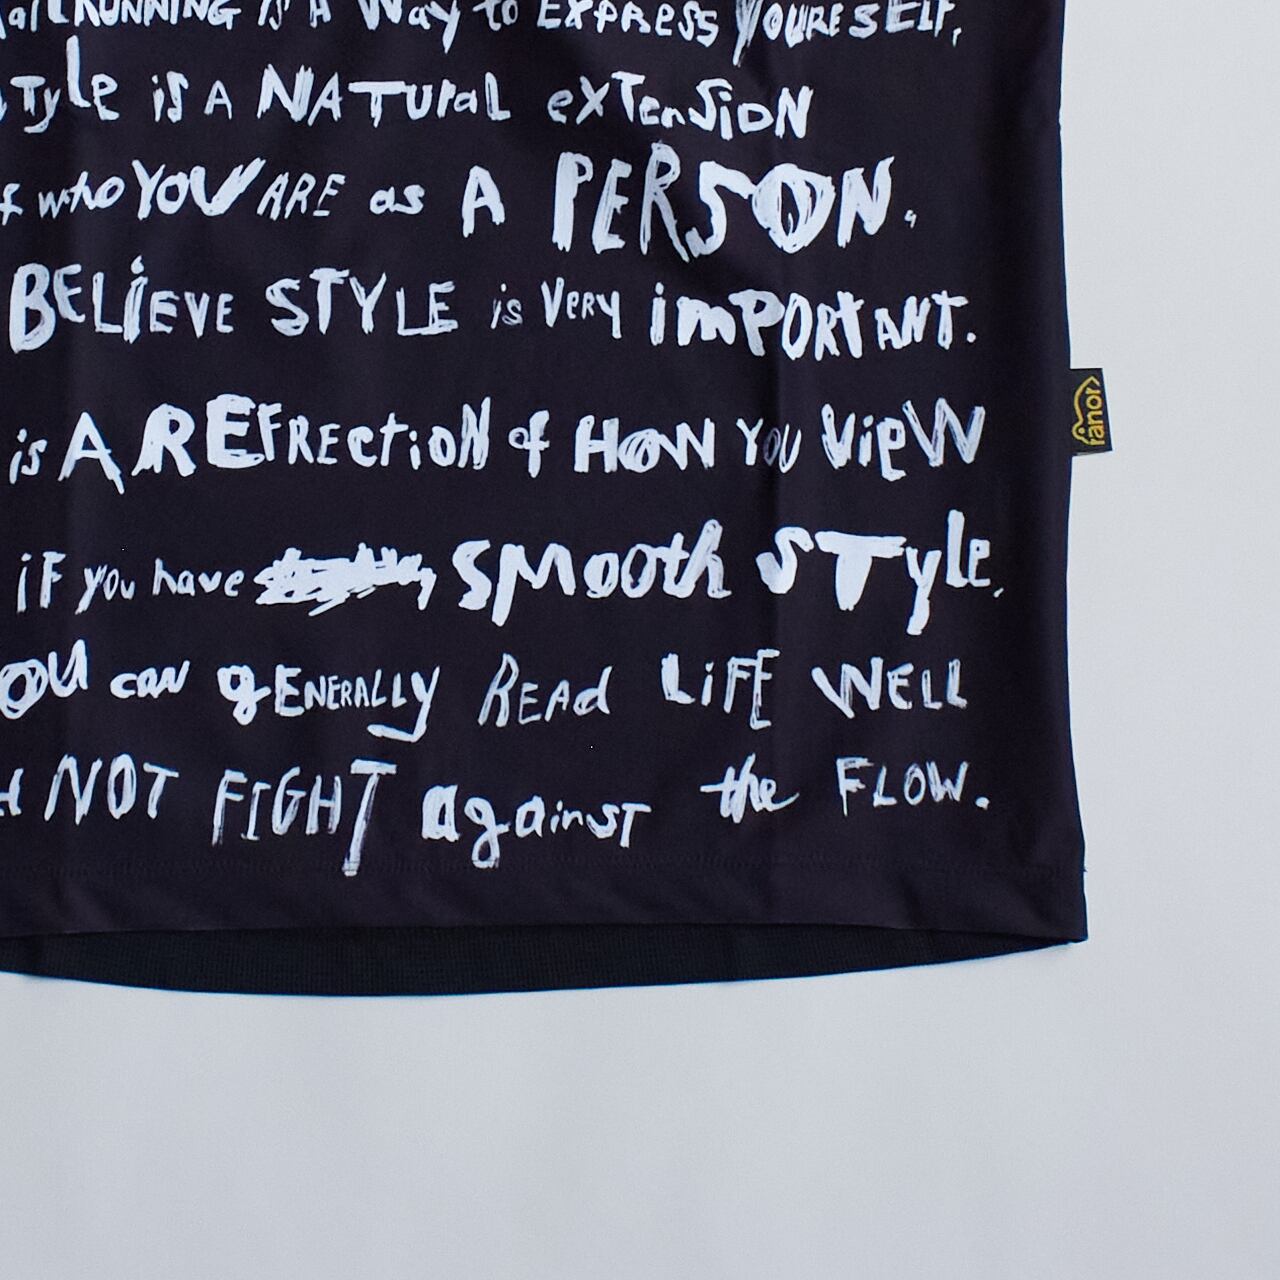 RUNNING is A Way to EXPRESS YOURESELF,
Tyle is A NATUraL exTenSiON
f who YOU ARE as A PERSON.
BELiEVE STYLE is VeRy imPORtANT.
is A REFRECtiON of HOW YOU VieW
iF you have SMooth STyle,
OU can gENERALLY REAd LiFE WELL
NOT FIGHT against the FLOW.
ranor